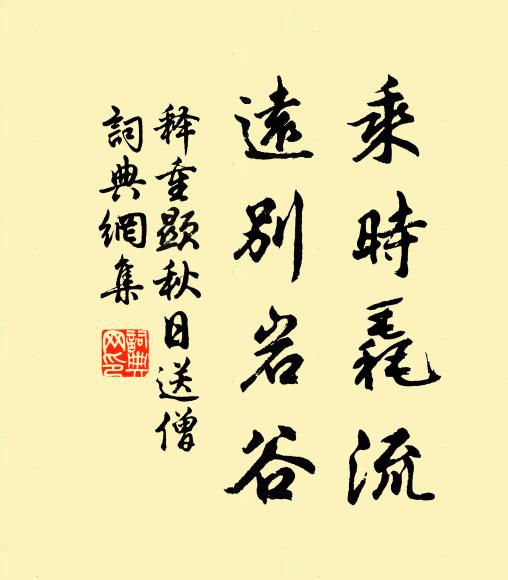 乘時毳流
遠別岩谷
释重顯秋日送僧
詞典網集
詞典網印